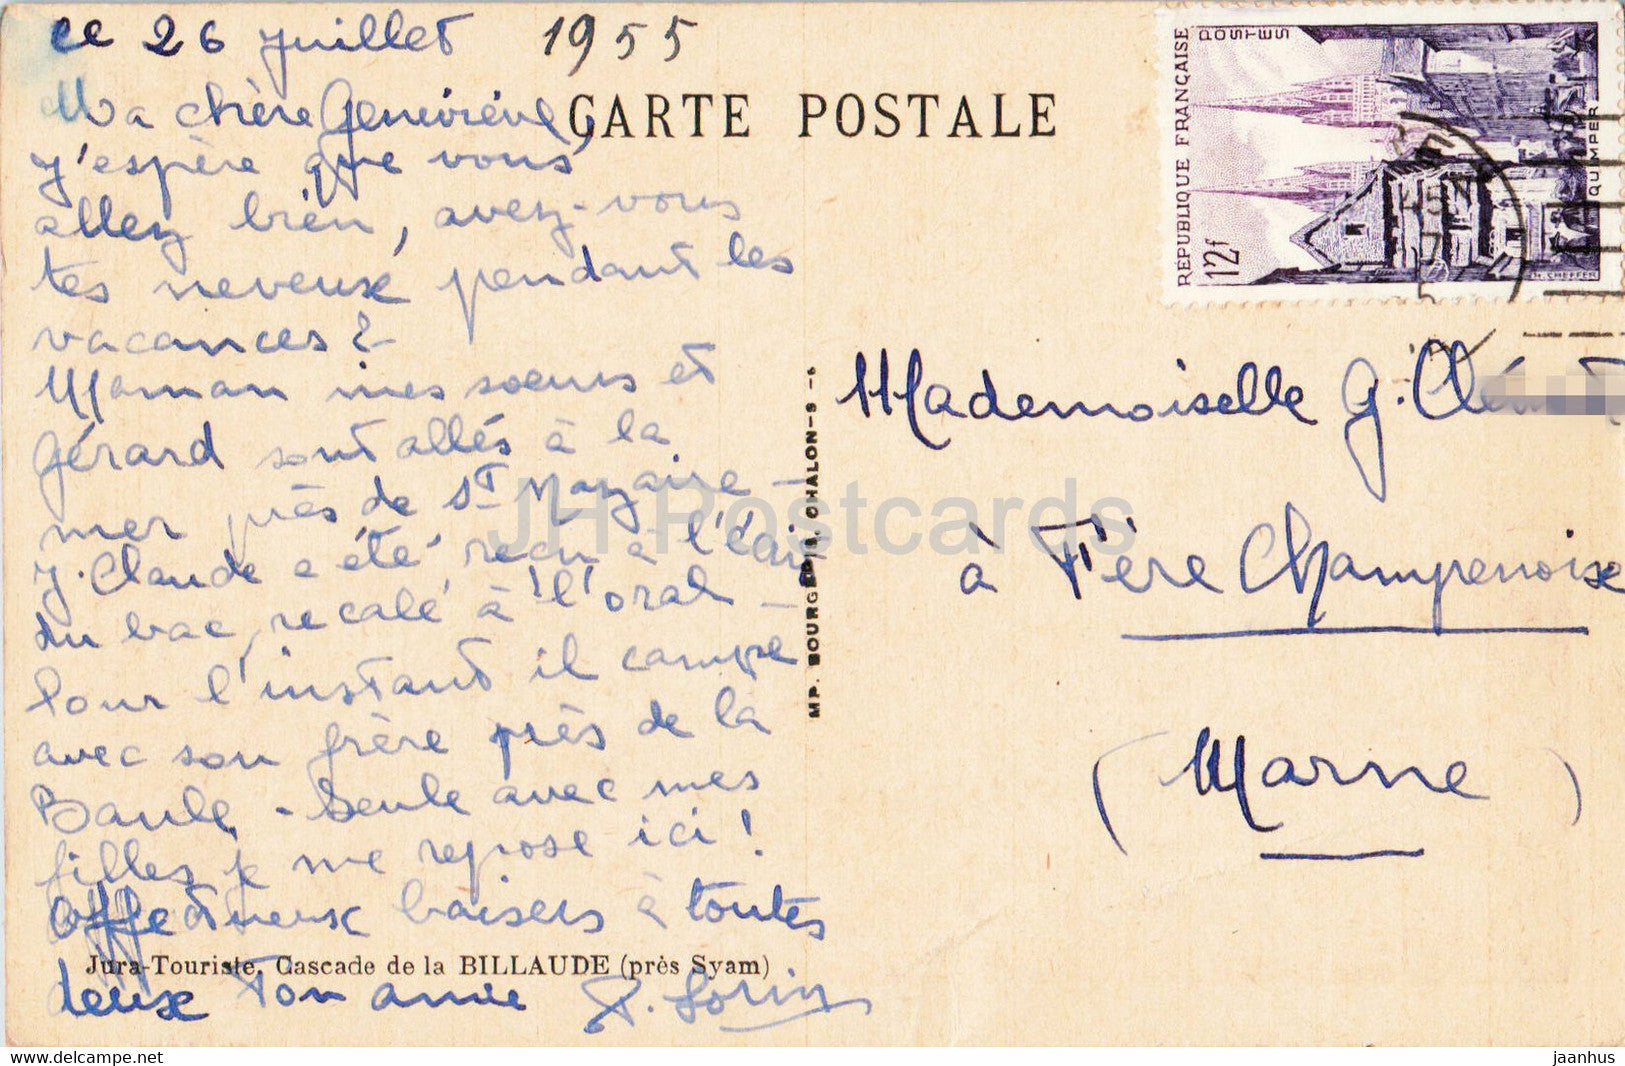 ce 26 juillet 1955
Ma chère Geneviève,
j'espère que vous
allez bien, avez-vous
tes neveux pendant les
vacances?
Maman mes soeurs et
Gérard sont allés à la
mer près de St Nazaire -
J. Claude a été reçu à l'écrit
du bac, recalé à l'oral -
Pour l'instant il campe
avec son frère près de la
Baule. - Seule avec mes
filles je me repose ici!
Affectueux baisers à toutes
deux Ton amie
CARTE POSTALE
Jura-Touriste. Cascade de la BILLAUDE (près Syam)
MP. BOURGEOIS, CHALON-S-S
REPUBLIQUE FRANÇAISE
POSTES
12f
QUIMPER
H. CHEFFER
Mademoiselle G.
à Fère Champenoise
(Marne)
JH Postcards
www.delcampe.net
jaanhus